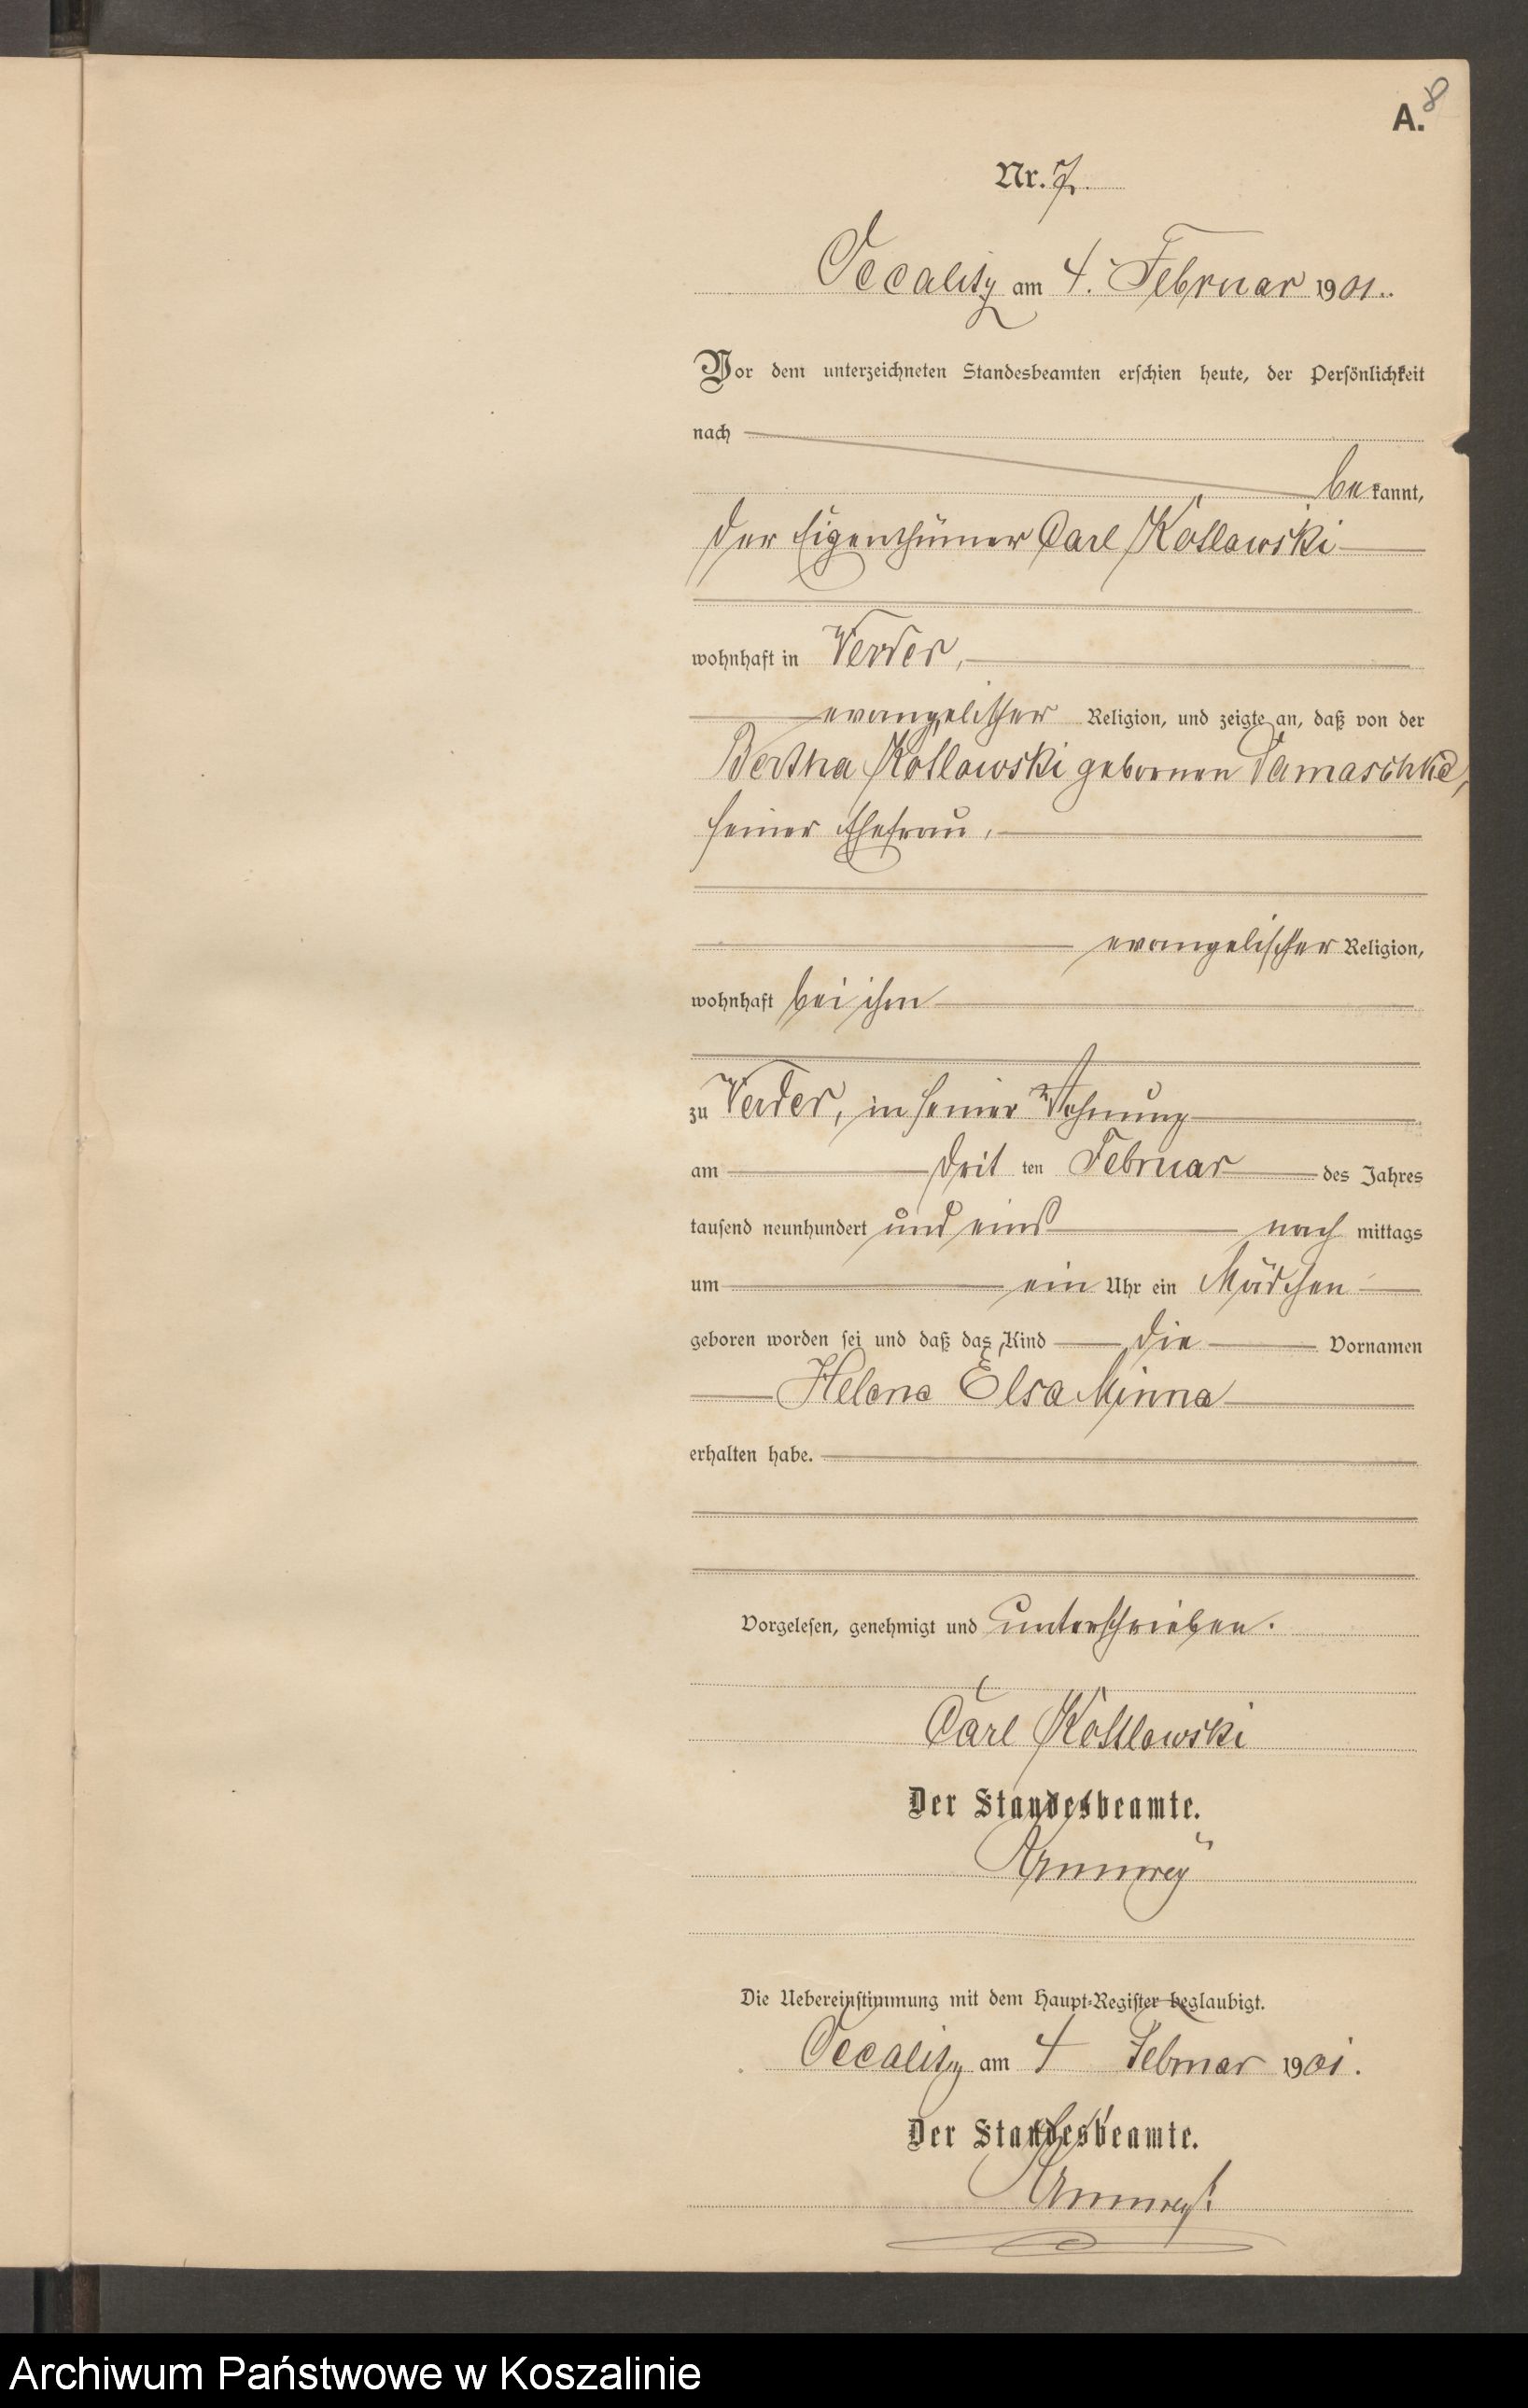 A. 8
Nr. 7.
Occalitz am 4. Februar 1901.
Vor dem unterzeichneten Standesbeamten erschien heute, der Persönlichkeit
nach
be kannt,
der Eigenthümer Carl Koslowski
wohnhaft in Verder,
evangelischer Religion, und zeigte an, daß von der
Bertha Koslowski gebornen Damaschke,
seiner Ehefrau,
evangelischer Religion,
wohnhaft bei ihm
zu Verder, in seiner Wohnung
am drit ten Februar des Jahres
tausend neunhundert und eins nach mittags
um ein Uhr ein Mädchen
geboren worden sei und daß das Kind die Vornamen
Helene Elsa Minna
erhalten habe.
Vorgelesen, genehmigt und unterschrieben.
Carl Koslowski
Der Standesbeamte.
Die Uebereinstimmung mit dem Haupt-Register beglaubigt.
Occalitz am 4 Februar 1901.
Der Standesbeamte.
Archiwum Państwowe w Koszalinie